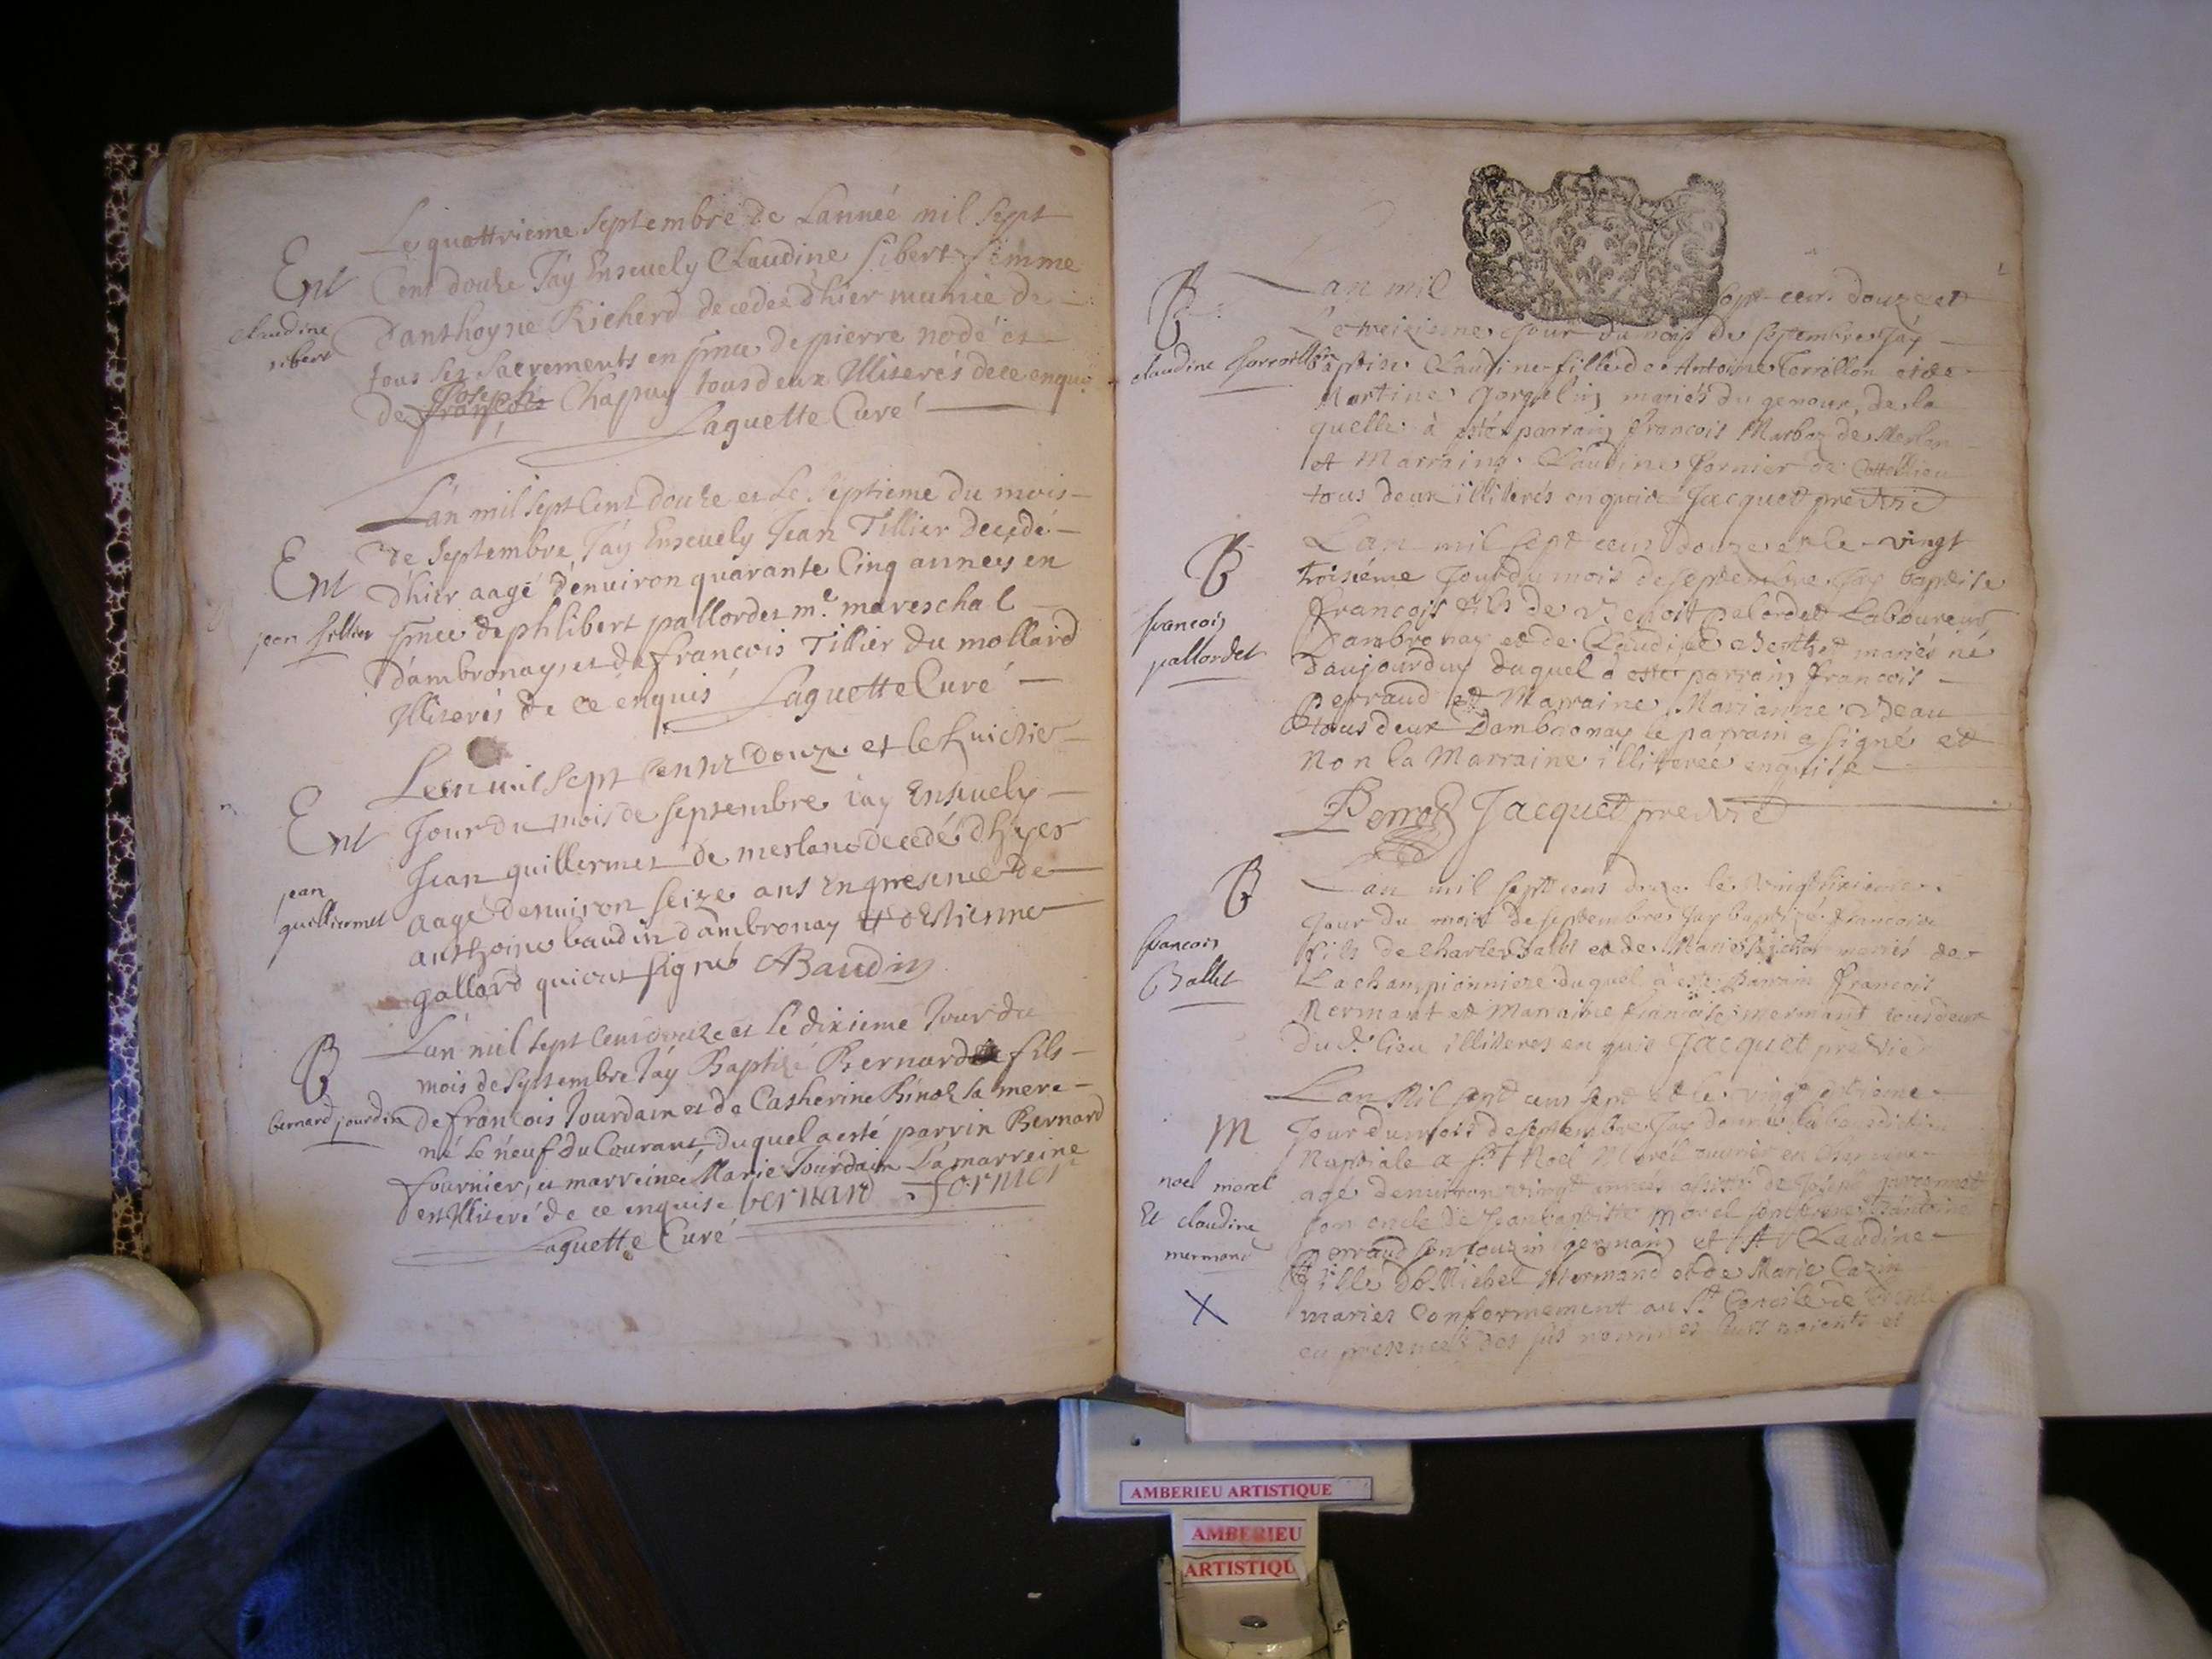 Le quattrieme Septembre de Lannéé mil Sept
Ent
Cent douze Jay Enseuely Claudine sibert femme
claudine
sibert
d'anthoyne Richerd decedeé dhier munie de
tous ses sacrements en pñce de pierre nodé et
Joseph
de françois Chapuy tous deux Illiterés de ce enquis
Laguette Curé
L'an mil sept Cent douze et Le septieme du mois
Ent
de Septembre Jay Enseuely Jean Tillier decedé
jean tillier
dhier aagé denuiron quarante Cinq anneés en
pñce de philibert pallordet me. mareschal
dambronay, et de francois Tillier du mollard
Illiterés de ce enquis Laguette Curé
Lean mil sept Cents Douze et le huictie
Ent
Jour du mois de septembre iay Enseuely
jean
guilliermet
Jean guillermet de merland decedé dhyer
aagé denuiron seize ans en presence de
anthoine baudin dambronay et destienne
gallard qui ont signé ABaudin
L'an mil sept Cens douze et Le dixieme Jour du
B
mois de Septembre Jay Baptizé Bernard fils
bernard jourdin
de francois Jourdain et de Catherine Binoz sa mere
né le neuf du Courant, duquel a esté parrin Bernard
fournier, et marreine Marie Jourdain La marreine
est Illiteré de ce enquise bernard fornier
Laguette Curé
Lan mil sept cens douze et
B
Le treizieme jour du mois de septembre Jay
claudine terroillon
baptise Claudine fille de Antoine Terrollon et de
Martine gorgelin mariés du genoux, de la
quelle à esté parrain francois Marboz de Merlan
et Marraine Claudine fornier de
tous deux illiterés enquis Jacquet prevtre
Lan mil sept cens douze et le vingt
B
troisiéme Jour du mois de septembre Jay baptise
francois
pallordet
francois fils de Benoit palordet Laboureur
Dambronay et de Claudine mariés né
Daujourduy duquel à esté parrain francois
Perraud et Marraine Marianne Beau
tous deux Dambronay le parrain a signé et
Non la Marraine illitereé enquise
Perrod Jacquet prevtre
Lan mil sept cens douze le vingtsixieme
B
Jour du mois de septembre Jay baptizé francois
francois
Ballet
fils de Charles Ballet et de Marie mariés de
La championniere duquel à esté Parrain francois
Mermant et Marraine francoise mermant tous deux
du d. lieu illiteres enquis Jacquet prevtre
Lan Mil sept cens sept et le vingt
M
Jour du mois de septembre Jay donné la benediction
Nuptiale a Noel Morel ouvrier en
noel morel
agé denuiron vingt années assisté de Joseph
Et claudine
mermand
son oncle de Jean baptiste Morel son frere
perraud son couzin germain et Claudine
fille de Michel Mermand et de Marie Cazin
X
mariés Conformement au St. Concile de
en presence des sus nommes leurs parents et
AMBERIEU ARTISTIQUE
AMBERIEU
ARTISTIQU